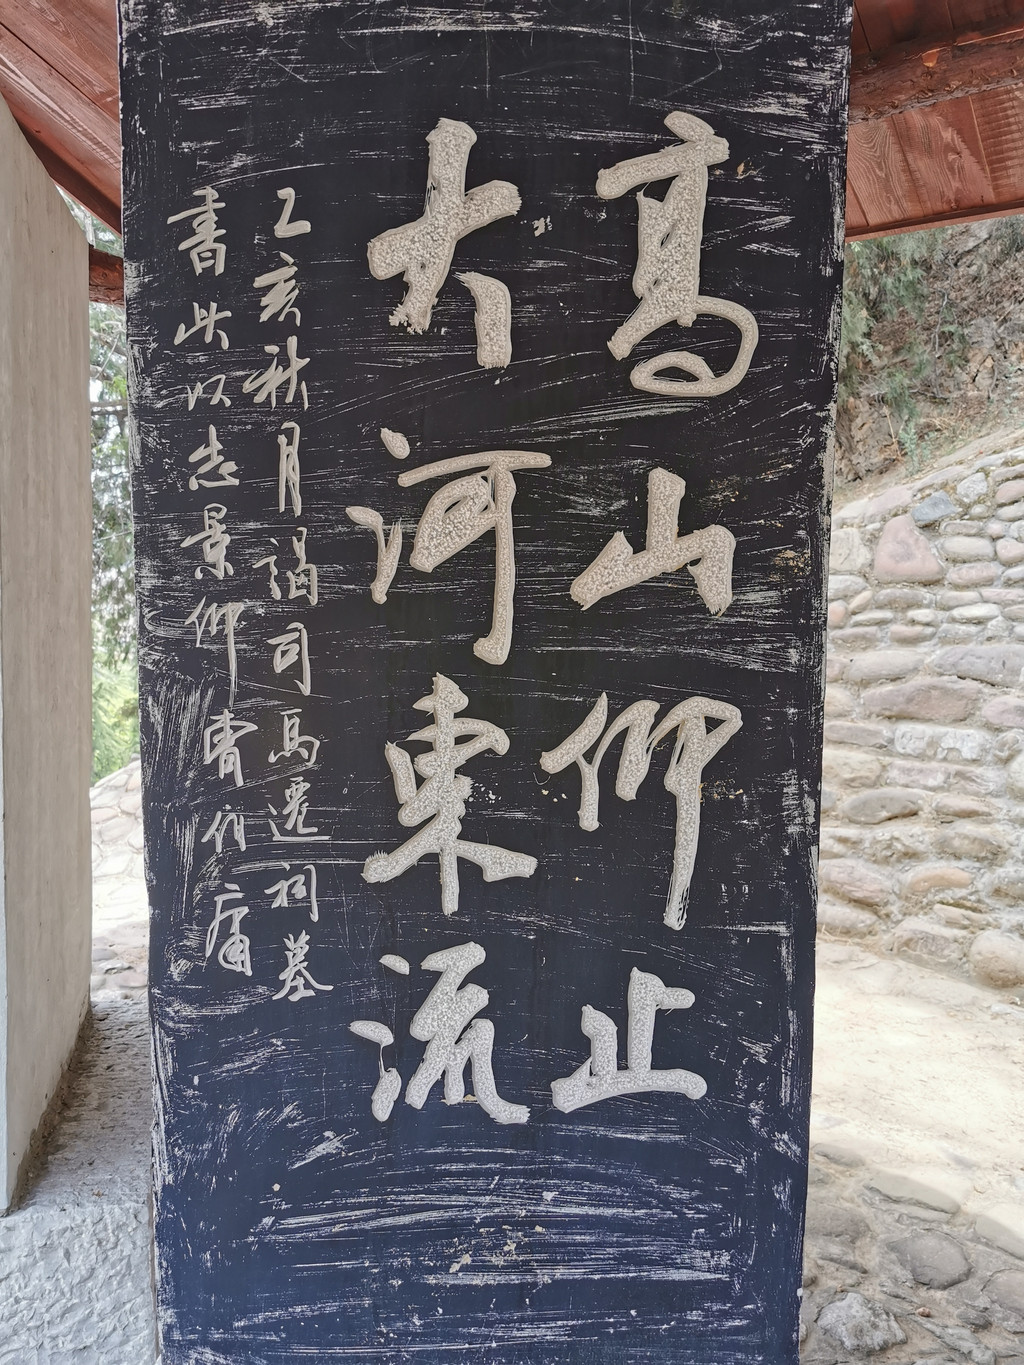 高山仰止
大河東流
乙亥秋月謁司馬遷祠墓
書此以志景仰 費伯庸